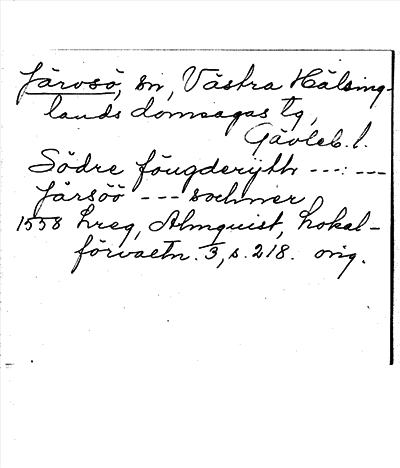 Järvsö, sn, Västra Hälsing-
lands domsagas tg,
Gävleb. l.
Södre föugderijth ---:---
Järsöö --- sochner
1558 hreg, Almquist, Lokal-
förvaltn. 3, s. 218. orig.